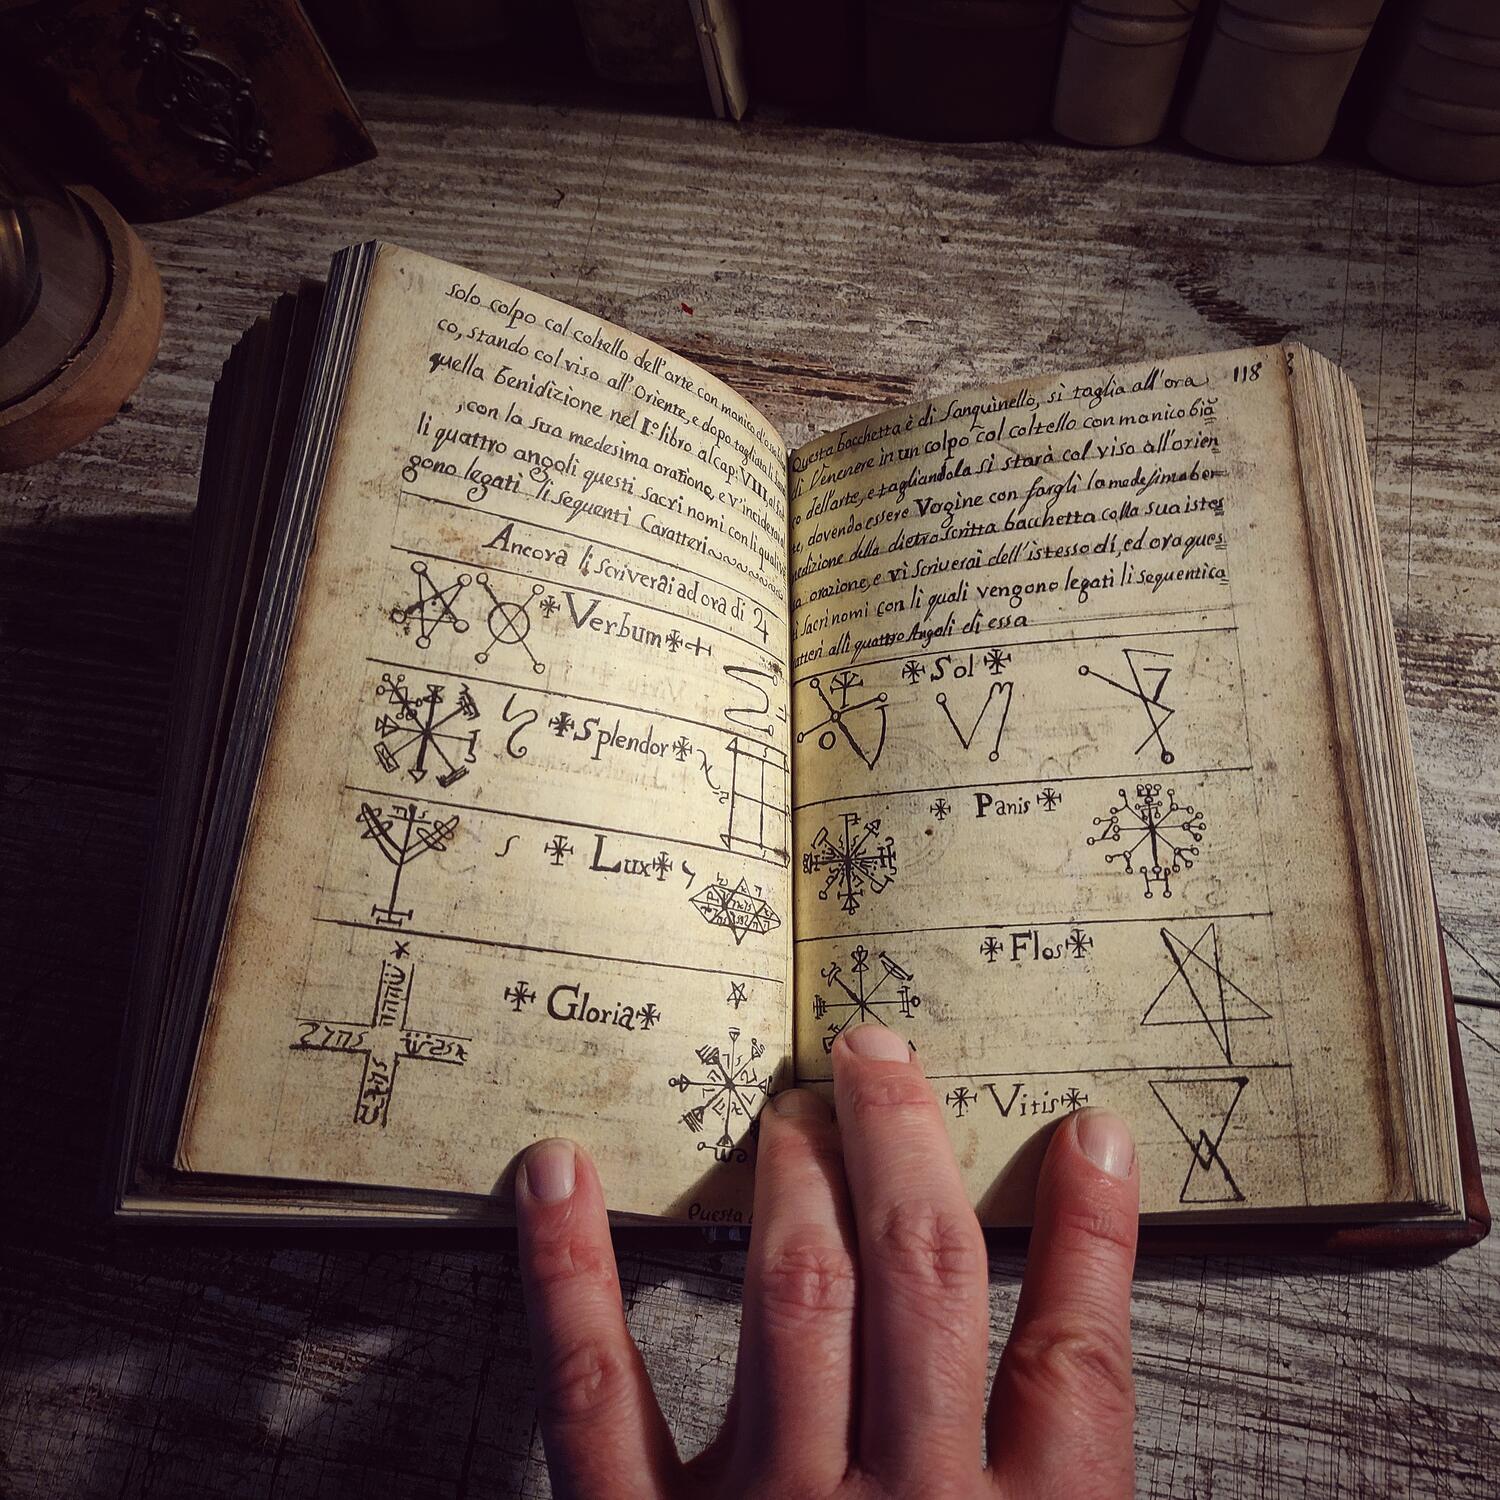 solo colpo col coltello dell'arte con manico
co, stando col viso all'Oriente, e dopo tagliata li
quella benidizione nel I:º libro al cap: VIII, al
, con la sua medesima oratione, e v'inciderai
li quattro angoli questi sacri nomi con li quali
gono legati li seguenti Caratteri
Ancora li scriverai ad ora di ♃
Verbum
Splendor
Lux
Gloria
Questa
118
Questa bacchetta è di Sanguinello, si taglia all'ora
di Venenere in un colpo col coltello con manico biā
co dell'arte, e tagliandola si starà col viso all'orien
te, dovendo essere Vergine con fargli la medesima be
nedizione della dietro scritta bacchetta colla sua istes
sa orazione, e vi scriverai dell'istesso dì, ed ora ques
ti Sacri nomi con li quali vengono legati li sequentica
ratteri alli quattro Angoli di essa
Sol
Panis
Flos
Vitis